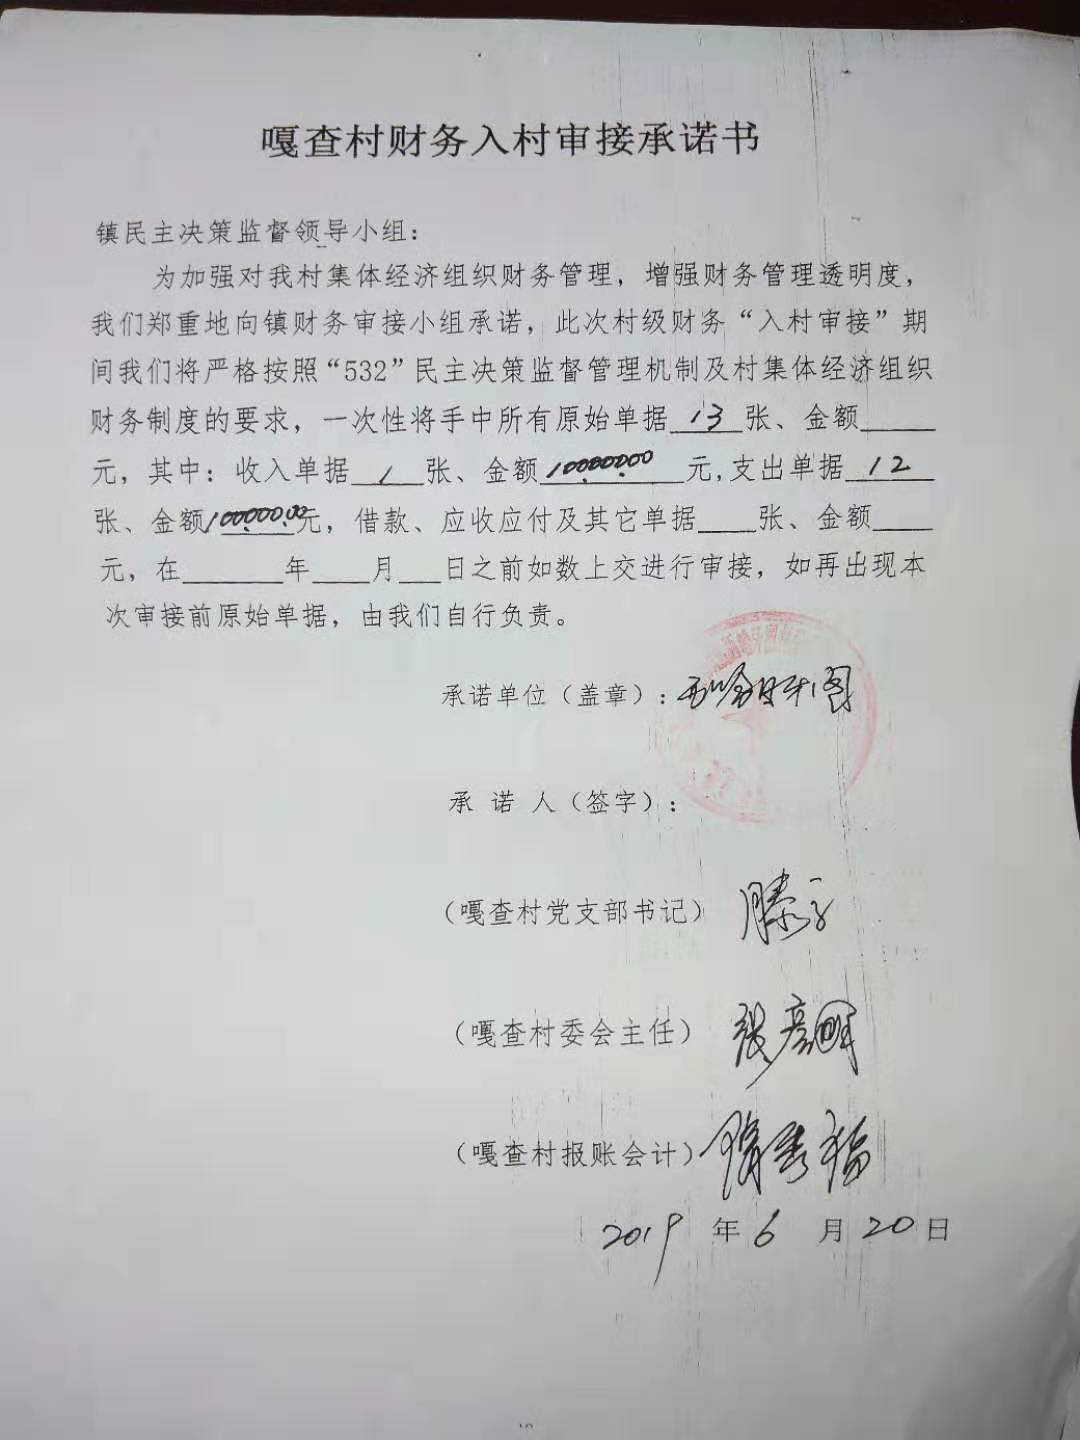 嘎查村财务入村审接承诺书
镇民主决策监督领导小组：
为加强对我村集体经济组织财务管理，增强财务管理透明度，
我们郑重地向镇财务审接小组承诺，此次村级财务“入村审接”期
间我们将严格按照“532”民主决策监督管理机制及村集体经济组织
财务制度的要求，一次性将手中所有原始单据 13 张、金额
元，其中：收入单据 1 张、金额 100000.00 元,支出单据 12
张、金额 100000.00 元，借款、应收应付及其它单据____张、金额____
元，在____年____月____日之前如数上交进行审接，如再出现本
次审接前原始单据，由我们自行负责。
承诺单位（盖章）：
承 诺 人（签字）：
（嘎查村党支部书记）
（嘎查村委会主任） 张彦明
（嘎查村报账会计）
2019 年 6 月 20 日